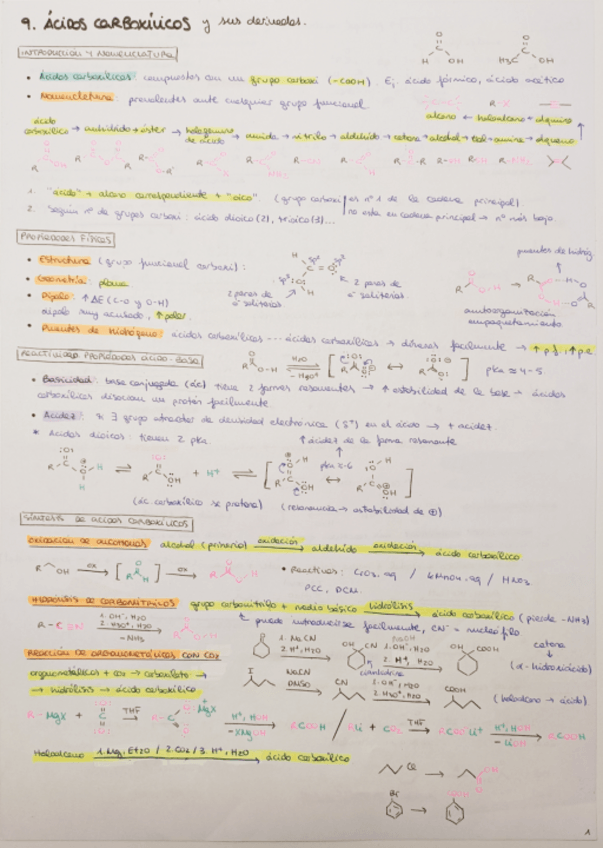 9. ÁCIDOS CARBOXÍLICOS y sus derivados.
INTRODUCCIÓN Y NOMENCLATURA
• Ácidos carboxílicos: compuestos con un grupo carboxi (-COOH). Ej: ácido fórmico, ácido acético
• Nomenclatura: prevalentes ante cualquier grupo funcional
alcano ← haloalcano ← alquino
ácido carboxílico → anhídrido → éster → halogenuro de ácido → amida → nitrilo → aldehído → cetona → alcohol → tiol → amina → alqueno
1. "ácido" + alcano correspondiente + "oico". (grupo carboxi es nº 1 de la cadena principal).
no esta en cadena principal → nº más bajo.
2. Según nº de grupos carboxi: ácido dioico (2), trioico (3)...
PROPIEDADES FÍSICAS
• Estructura (grupo funcional carboxi):
puentes de hidróg.
• Geometría: plana
2 pares de e⁻ solitarios
2 pares de e⁻ solitarios
• Dipolo: ↑ΔE (C-O y O-H)
dipolo muy acusado, ↑polar.
autoorganización
empaquetamiento
• Puentes de hidrógeno: ácidos carboxílicos --- ácidos carboxílicos → dímeros fácilmente → ↑p.f, ↑p.e
REACTIVIDAD. PROPIEDADES ÁCIDO-BASE
H₂O
-H₃O⁺
pka ≈ 4-5.
• Basicidad: base conjugada (ác) tiene 2 formas resonantes → ↑ estabilidad de la base → ácidos
carboxílicos disocian un protón fácilmente.
• Acidez: si ∃ grupo atractor de densidad electrónica (δ⁺) en el ácido → + acidez.
* Ácidos dioicos: tienen 2 pka.
↑ acidez de la forma resonante
pka ≈ -6
(ác. carboxílico se protona) (resonancia → estabilidad de ⊕)
SÍNTESIS DE ÁCIDOS CARBOXÍLICOS
OXIDACIÓN DE ALCOHOLES alcohol (primario) oxidación → aldehído oxidación → ácido carboxílico
• Reactivos: CrO₃, aq / KMnO₄, aq / HNO₃
PCC, DCM.
HIDRÓLISIS DE CARBONITRILOS grupo carbonitrilo + medio básico hidrólisis → ácido carboxílico (pierde -NH₃)
R-C≡N 1. OH⁻, H₂O 2. H₃O⁺, H₂O -NH₃
↳ puede introducirse fácilmente, CN⁻ = nucleófilo
REACCIÓN DE ORGANOMETÁLICOS CON CO₂
1. NaCN 2. H⁺, H₂O
cianhidrina
1. OH⁻, H₂O 2. H⁺, H₂O
cetona → (α-hidroxiácido)
organometálicos + CO₂ → carboxilato →
→ hidrólisis → ácido carboxílico
NaCN DMSO
1. OH⁻, H₂O 2. H₃O⁺, H₂O
(haloalcano → ácido)
R-MgX + THF → H⁺, HOH -XMgOH → RCOOH / RLi + CO₂ THF → RCOO⁻Li⁺ H⁺, HOH -LiOH → RCOOH
Haloalcano 1. Mg, Et₂O / 2. CO₂ / 3. H⁺, H₂O → ácido carboxílico
1